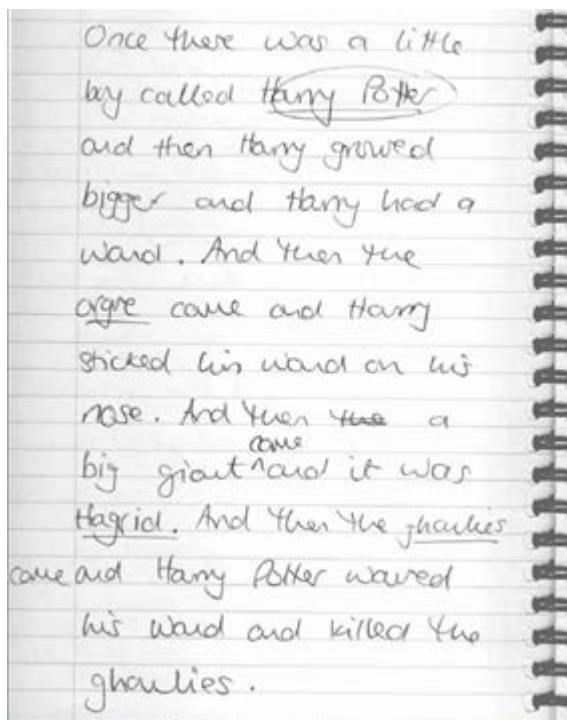 Once there was a little
boy called Harry Potter
and then Harry growed
bigger and Harry had a
wand. And then the
orgre came and Harry
sticked his wand on his
nose. And then the a
big giant came and it was
Hagrid. And then the ghoulies
came and Harry Potter waved
his wand and killed the
ghoulies.